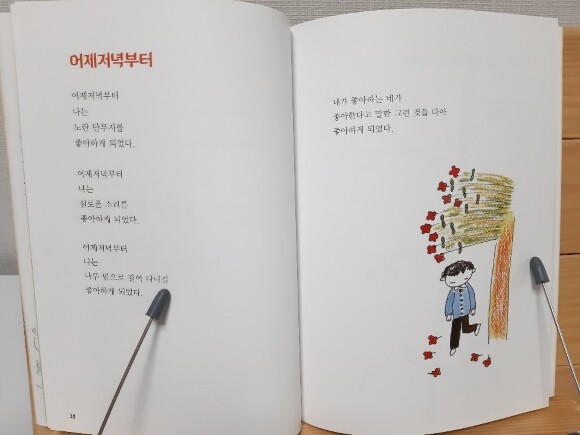 어제저녁부터
어제저녁부터
나는
노란 단무지를
좋아하게 되었다.
어제저녁부터
나는
실로폰 소리를
좋아하게 되었다.
어제저녁부터
나는
나무 밑으로 걸어 다니길
좋아하게 되었다.
내가 좋아하는 네가
좋아한다고 말한 그런 것들 다아
좋아하게 되었다.